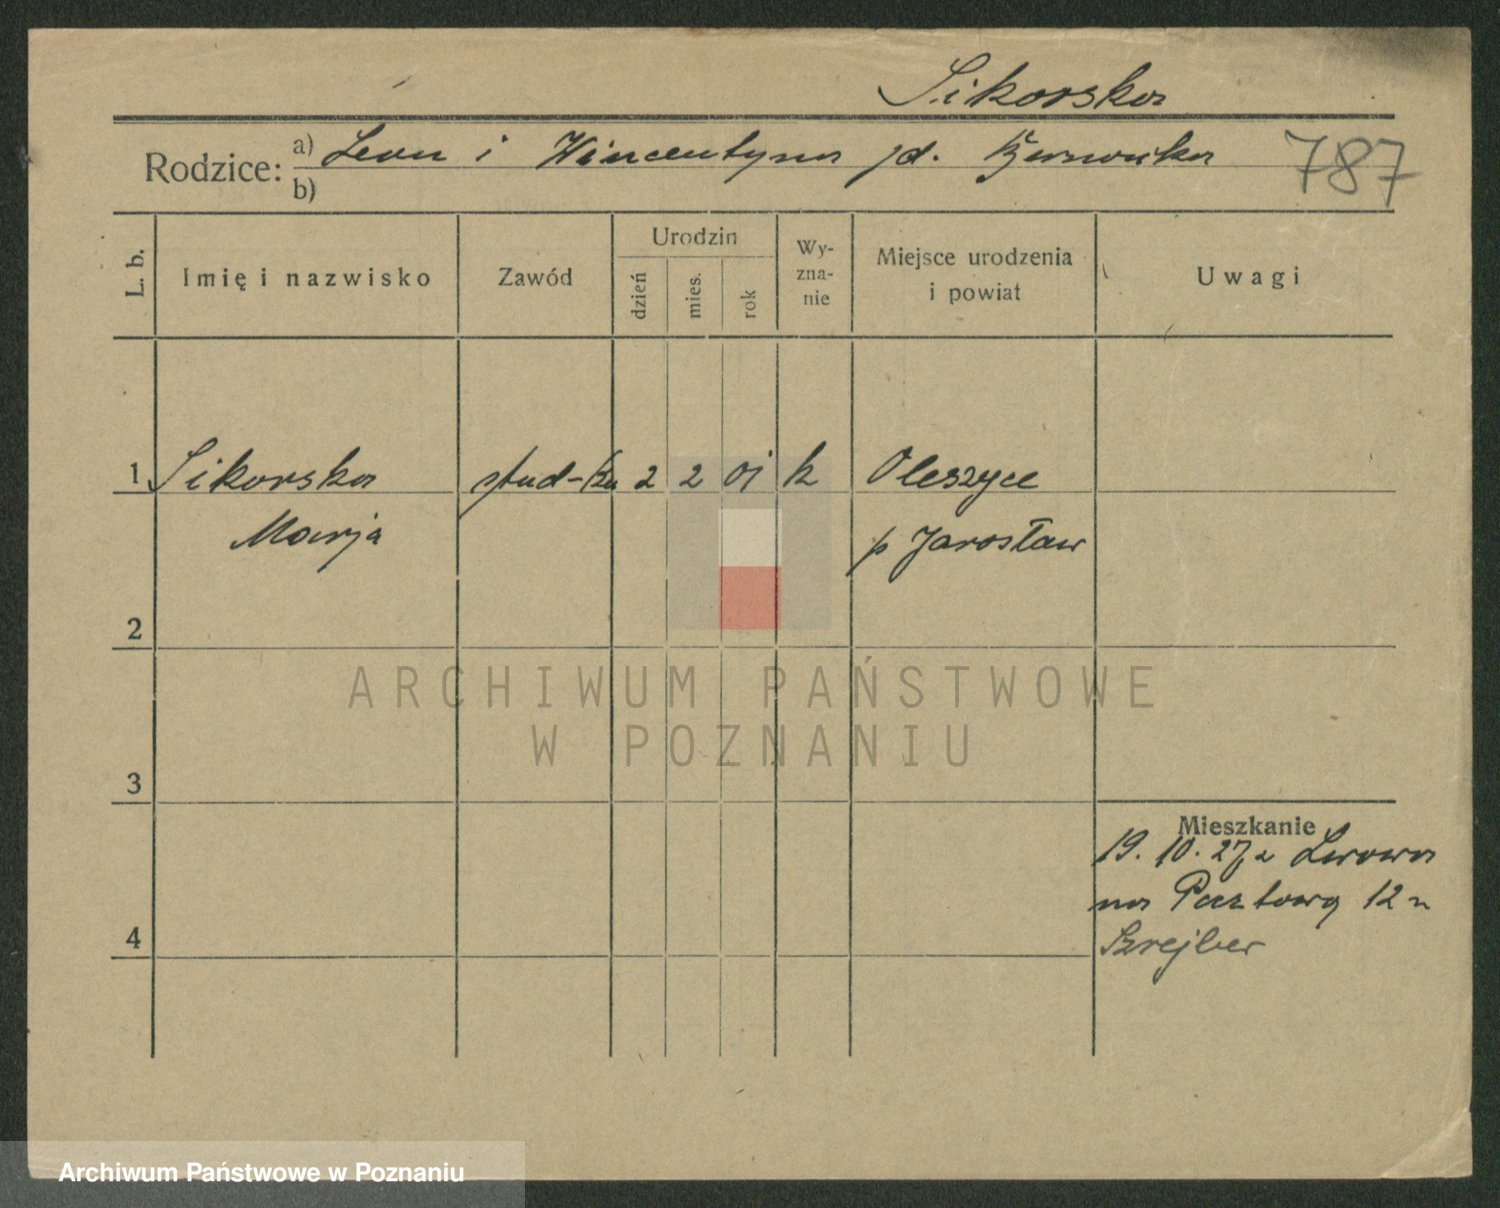 Sikorska
Rodzice: a) Leon i Wincentyna
b)
787
L. b.
Imię i nazwisko
Zawód
Urodzin
dzień
mies.
rok
Wy-
zna-
nie
Miejsce urodzenia
i powiat
Uwagi
1 Sikorska stud-ka 2 2 01 k Oleszyce
Marja p Jarosław
2
3
4
Mieszkanie
19. 10. 27 z Lwowa
na Pocztową 12
ARCHIWUM PAŃSTWOWE
W POZNANIU
Archiwum Państwowe w Poznaniu